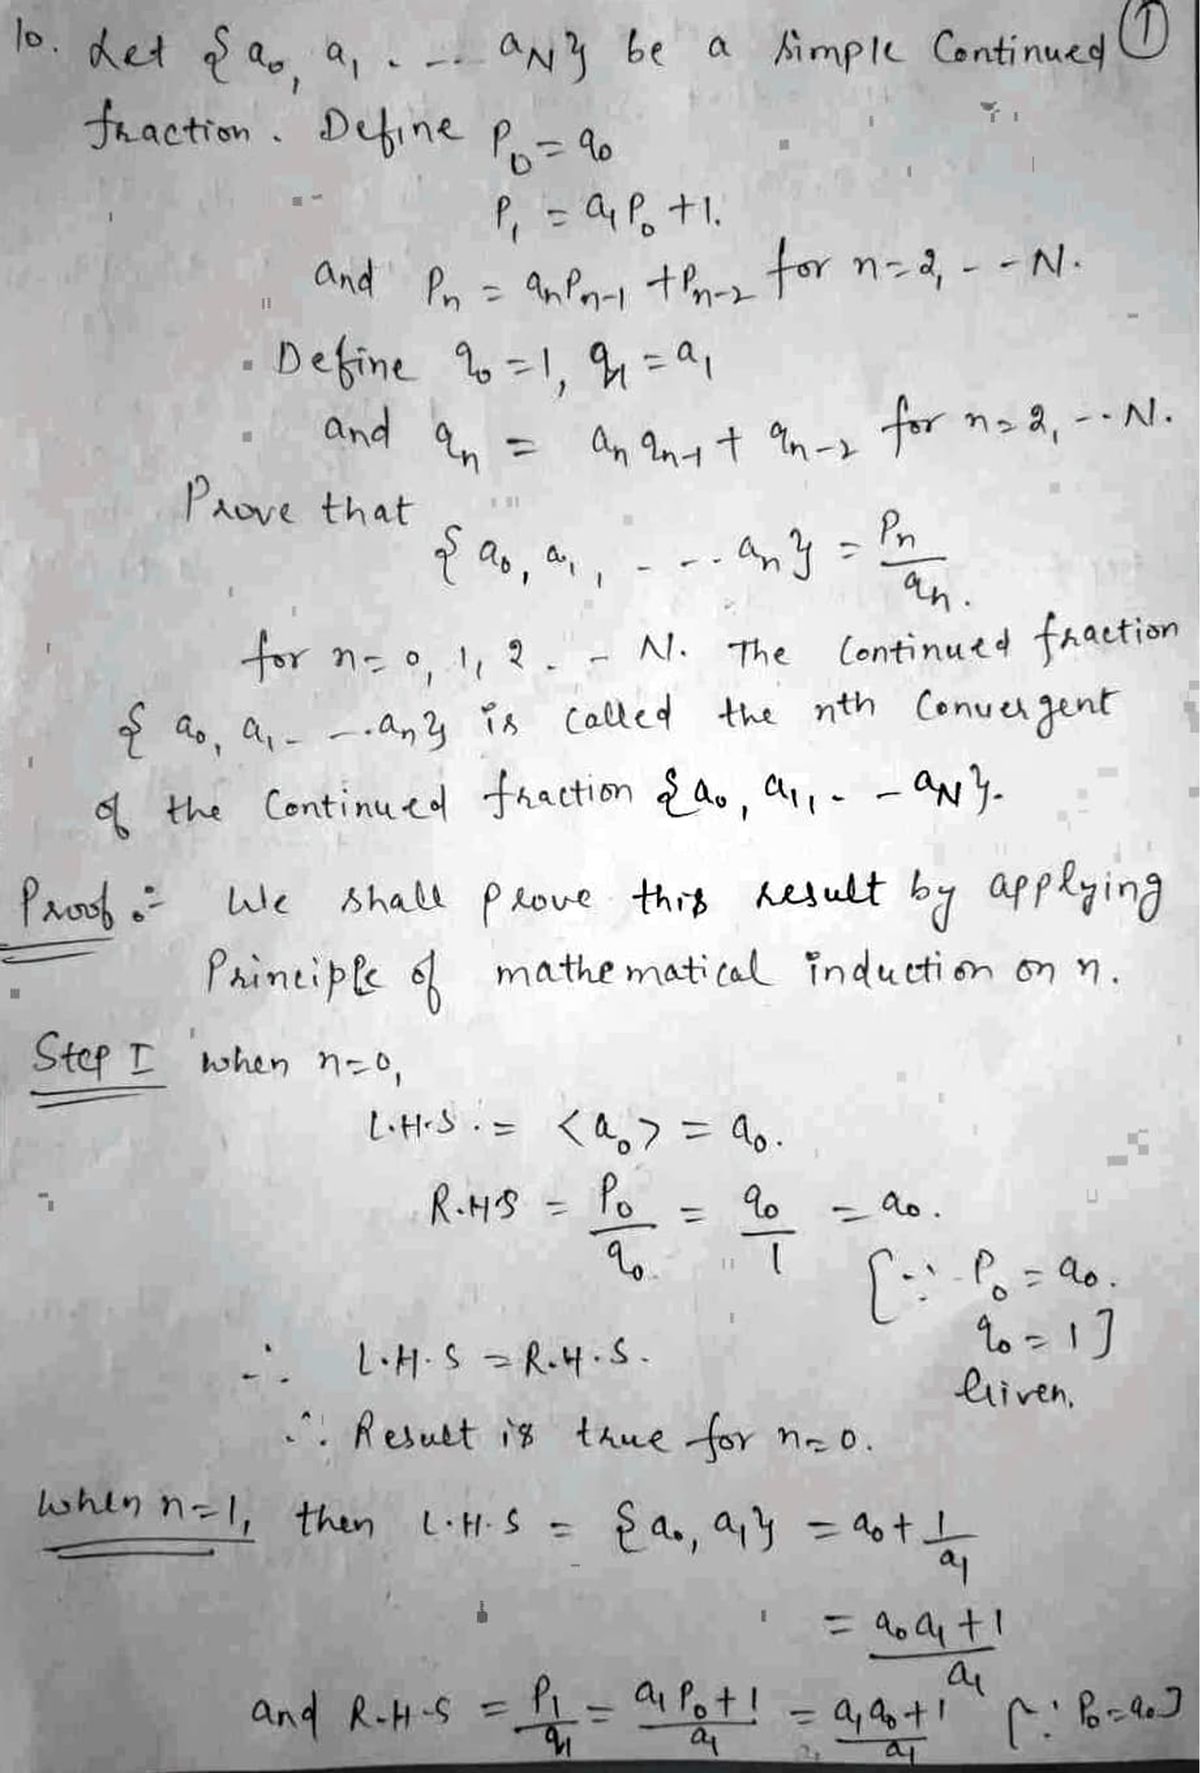 10. Let {a₀, a₁ . --- a_N} be a simple Continued ①
fraction. Define P₀ = a₀
P₁ = a₁P₀ + 1.
and Pₙ = aₙPₙ₋₁ + Pₙ₋₂ for n=2, - - N.
Define q₀ = 1, q₁ = a₁
and qₙ = aₙ qₙ₋₁ + qₙ₋₂ for n=2, -- N.
Prove that
{a₀, a₁, - --. aₙ} = Pₙ/qₙ.
for n=0, 1, 2 . - N. The Continued fraction
{a₀, a₁ - --. aₙ} is called the nth Convergent
of the Continued fraction {a₀, a₁, - - a_N}.
Proof :- We shall prove this result by applying
Principle of mathematical induction on n.
Step I when n=0,
L.H.S. = <a₀> = a₀.
R.H.S = P₀/q₀ = a₀/1 = a₀.
[∵ P₀ = a₀.
q₀ = 1]
∴ L.H.S = R.H.S.
Given.
∴ Result is true for n=0.
When n=1, then L.H.S = {a₀, a₁} = a₀ + 1/a₁
= (a₀a₁ + 1)/a₁
and R.H.S = P₁/q₁ = (a₁P₀ + 1)/a₁ = (a₁a₀ + 1)/a₁ [∵ P₀ = a₀]